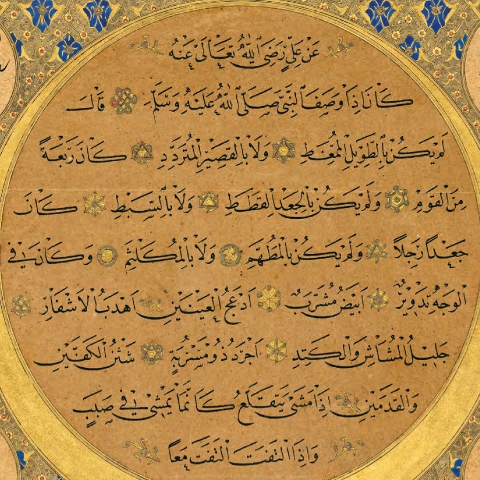 عَنْ عَلِيٍّ رَضِيَ اللّٰهُ تَعَالٰى عَنْهُ
كَانَ اِذَا وَصَفَ النَّبِيَّ صَلَّى اللّٰهُ عَلَيْهِ وَسَلَّمَ قَالَ
لَمْ يَكُنْ بِالطَّوِيلِ الْمُمَغَّطِ وَلَا بِالْقَصِيرِ الْمُتَرَدِّدِ كَانَ رَبْعَةً
مِنَ الْقَوْمِ وَلَمْ يَكُنْ بِالْجَعْدِ الْقَطَطِ وَلَا بِالسَّبْطِ كَانَ
جَعْدًا رَجِلًا وَلَمْ يَكُنْ بِالْمُطَهَّمِ وَلَا بِالْمُكَلْثَمِ وَكَانَ فِي
الْوَجْهِ تَدْوِيرٌ اَبْيَضُ مُشْرَبٌ اَدْعَجُ الْعَيْنَيْنِ اَهْدَبُ الْاَشْفَارِ
جَلِيلُ الْمُشَاشِ وَالْكَتَدِ اَجْرَدُ ذُو مَسْرُبَةٍ شَثْنُ الْكَفَّيْنِ
وَالْقَدَمَيْنِ اِذَا مَشٰى يَتَقَلَّعُ كَاَنَّمَا يَمْشِي فِي صَبَبٍ
وَاِذَا الْتَفَتَ الْتَفَتَ مَعًا